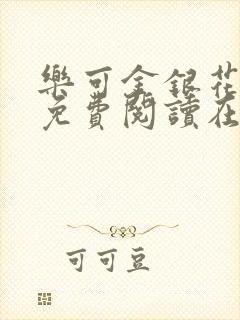 樂可金銀花
免費閱讀在
可可豆